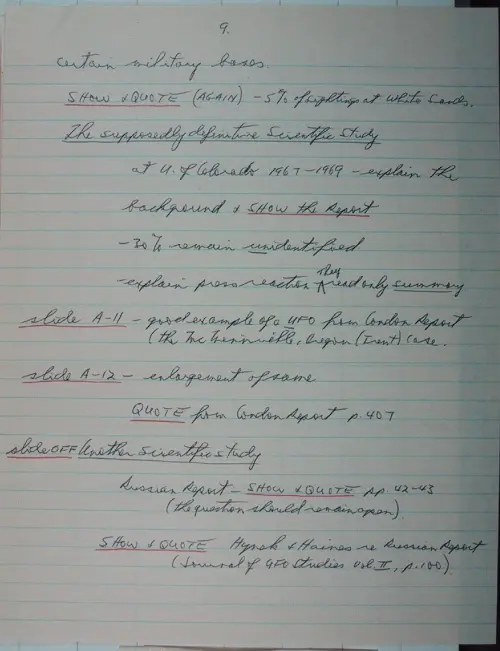 9.
certain military bases.
SHOW & QUOTE (AGAIN) - 5% of sightings at White Sands.
The supposedly definitive Scientific Study
at U. of Colorado 1967-1969 - explain the
background & SHOW the Report
- 30% remain unidentified
- explain press reaction they read only summary
slide A-11 - good example of a UFO from Condon Report
(the McMinnville, Oregon (Trent) case.
slide A-12 - enlargement of same
QUOTE from Condon Report p. 407
slide OFF Another Scientific Study
Russian Report - SHOW & QUOTE pp. 42-43
(the question should remain open).
SHOW & QUOTE Hynek & Haines re Russian Report
(Journal of UFO Studies Vol. II, p. 100)